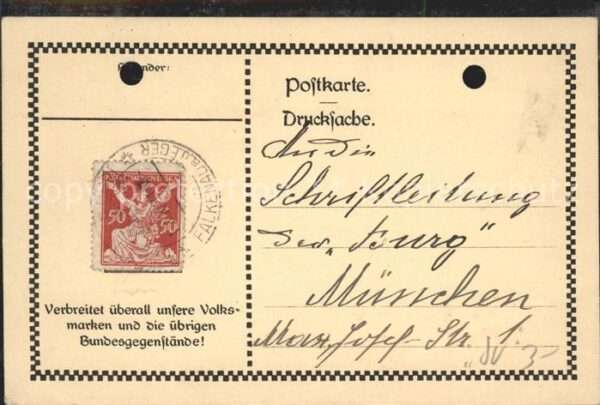 Postkarte.
Drucksache.
FALKENAU A.D. EGER
50 50
An die
Schriftleitung
der „Burg"
München
Max Josef-Str. 1.
Verbreitet überall unsere Volks-
marken und die übrigen
Bundesgegenstände!